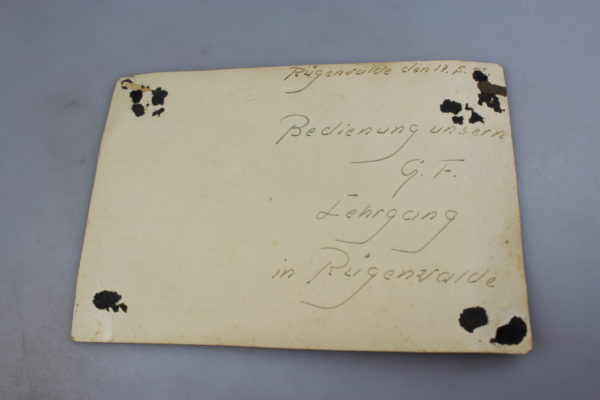 Rügenwalde den 17. 5.
Bedienung unsern
G. F.
Lehrgang
in Rügenwalde